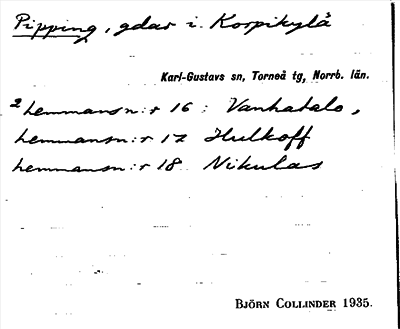 Pipping, gdar i Korpikylä
Karl-Gustavs sn, Torneå tg, Norrb. län.
2 hemmansn:r 16 : Vanhatalo,
hemmansn:r 17 Hulkoff
hemmansn:r 18 Nikulas
BJÖRN COLLINDER 1935.